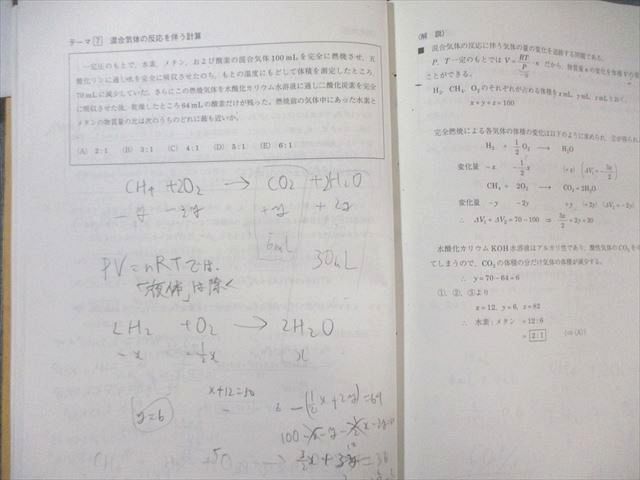 テーマ 7 混合気体の反応を伴う計算
一定圧のもとで,水素,メタン,および酸素の混合気体100mLを完全に燃焼させ,
酸化リンに通し水を完全に吸収させたのち,もとの温度にもどして体積を測定したところ,
70mLに減少していた。さらにこの燃焼気体を水酸化カリウム水溶液に通し二酸化炭素を完全
に吸収させた後,乾燥したところ64mLの酸素だけが残った。燃焼前の気体中にあった水素と
メタンの物質量の比は次のうちのどれに最も近いか。
(A) 2:1 (B) 3:1 (C) 4:1 (D) 5:1 (E) 6:1
CH₄ +2O₂ → CO₂ +2H₂O
-y -2y +y +2y
6mL
30mL
PV=nRTでは,
「液体」は除く
2H₂ +O₂ → 2H₂O
-x -½x x
x+12=30
y=6
-(½x+2y)=64
(解 説)
■ 混合気体の反応に伴う気体の量の変化を追跡する問題である。
P, T一定のもとでは V=RT/P・n だから,物質量nの変化を体積Vの
ことができる。
H₂, CH₄, O₂のそれぞれが占める体積をx mL, y mL, z mLとおく。
x+y+z=100
完全燃焼による各気体の体積の変化は以下のように求められ,
H₂ + 1/2 O₂ → H₂O
変化量 -x -1/2 x (+x) (ΔV₁=-3x/2)
CH₄ + 2O₂ → CO₂+2H₂O
変化量 -y -2y +y (+2y) (ΔV₂=-2y)
∴ ΔV₁+ΔV₂=70-100 ⇒ 3x/2+2y=30
水酸化カリウムKOH水溶液はアルカリ性であり,酸性気体のCO₂を
てしまうので,CO₂の体積の分だけ気体の体積が減少する。
∴ y=70-64=6
①, ②, ③より
x=12, y=6, z=82
∴ 水素:メタン =12:6
= 2:1 (⇨(A))